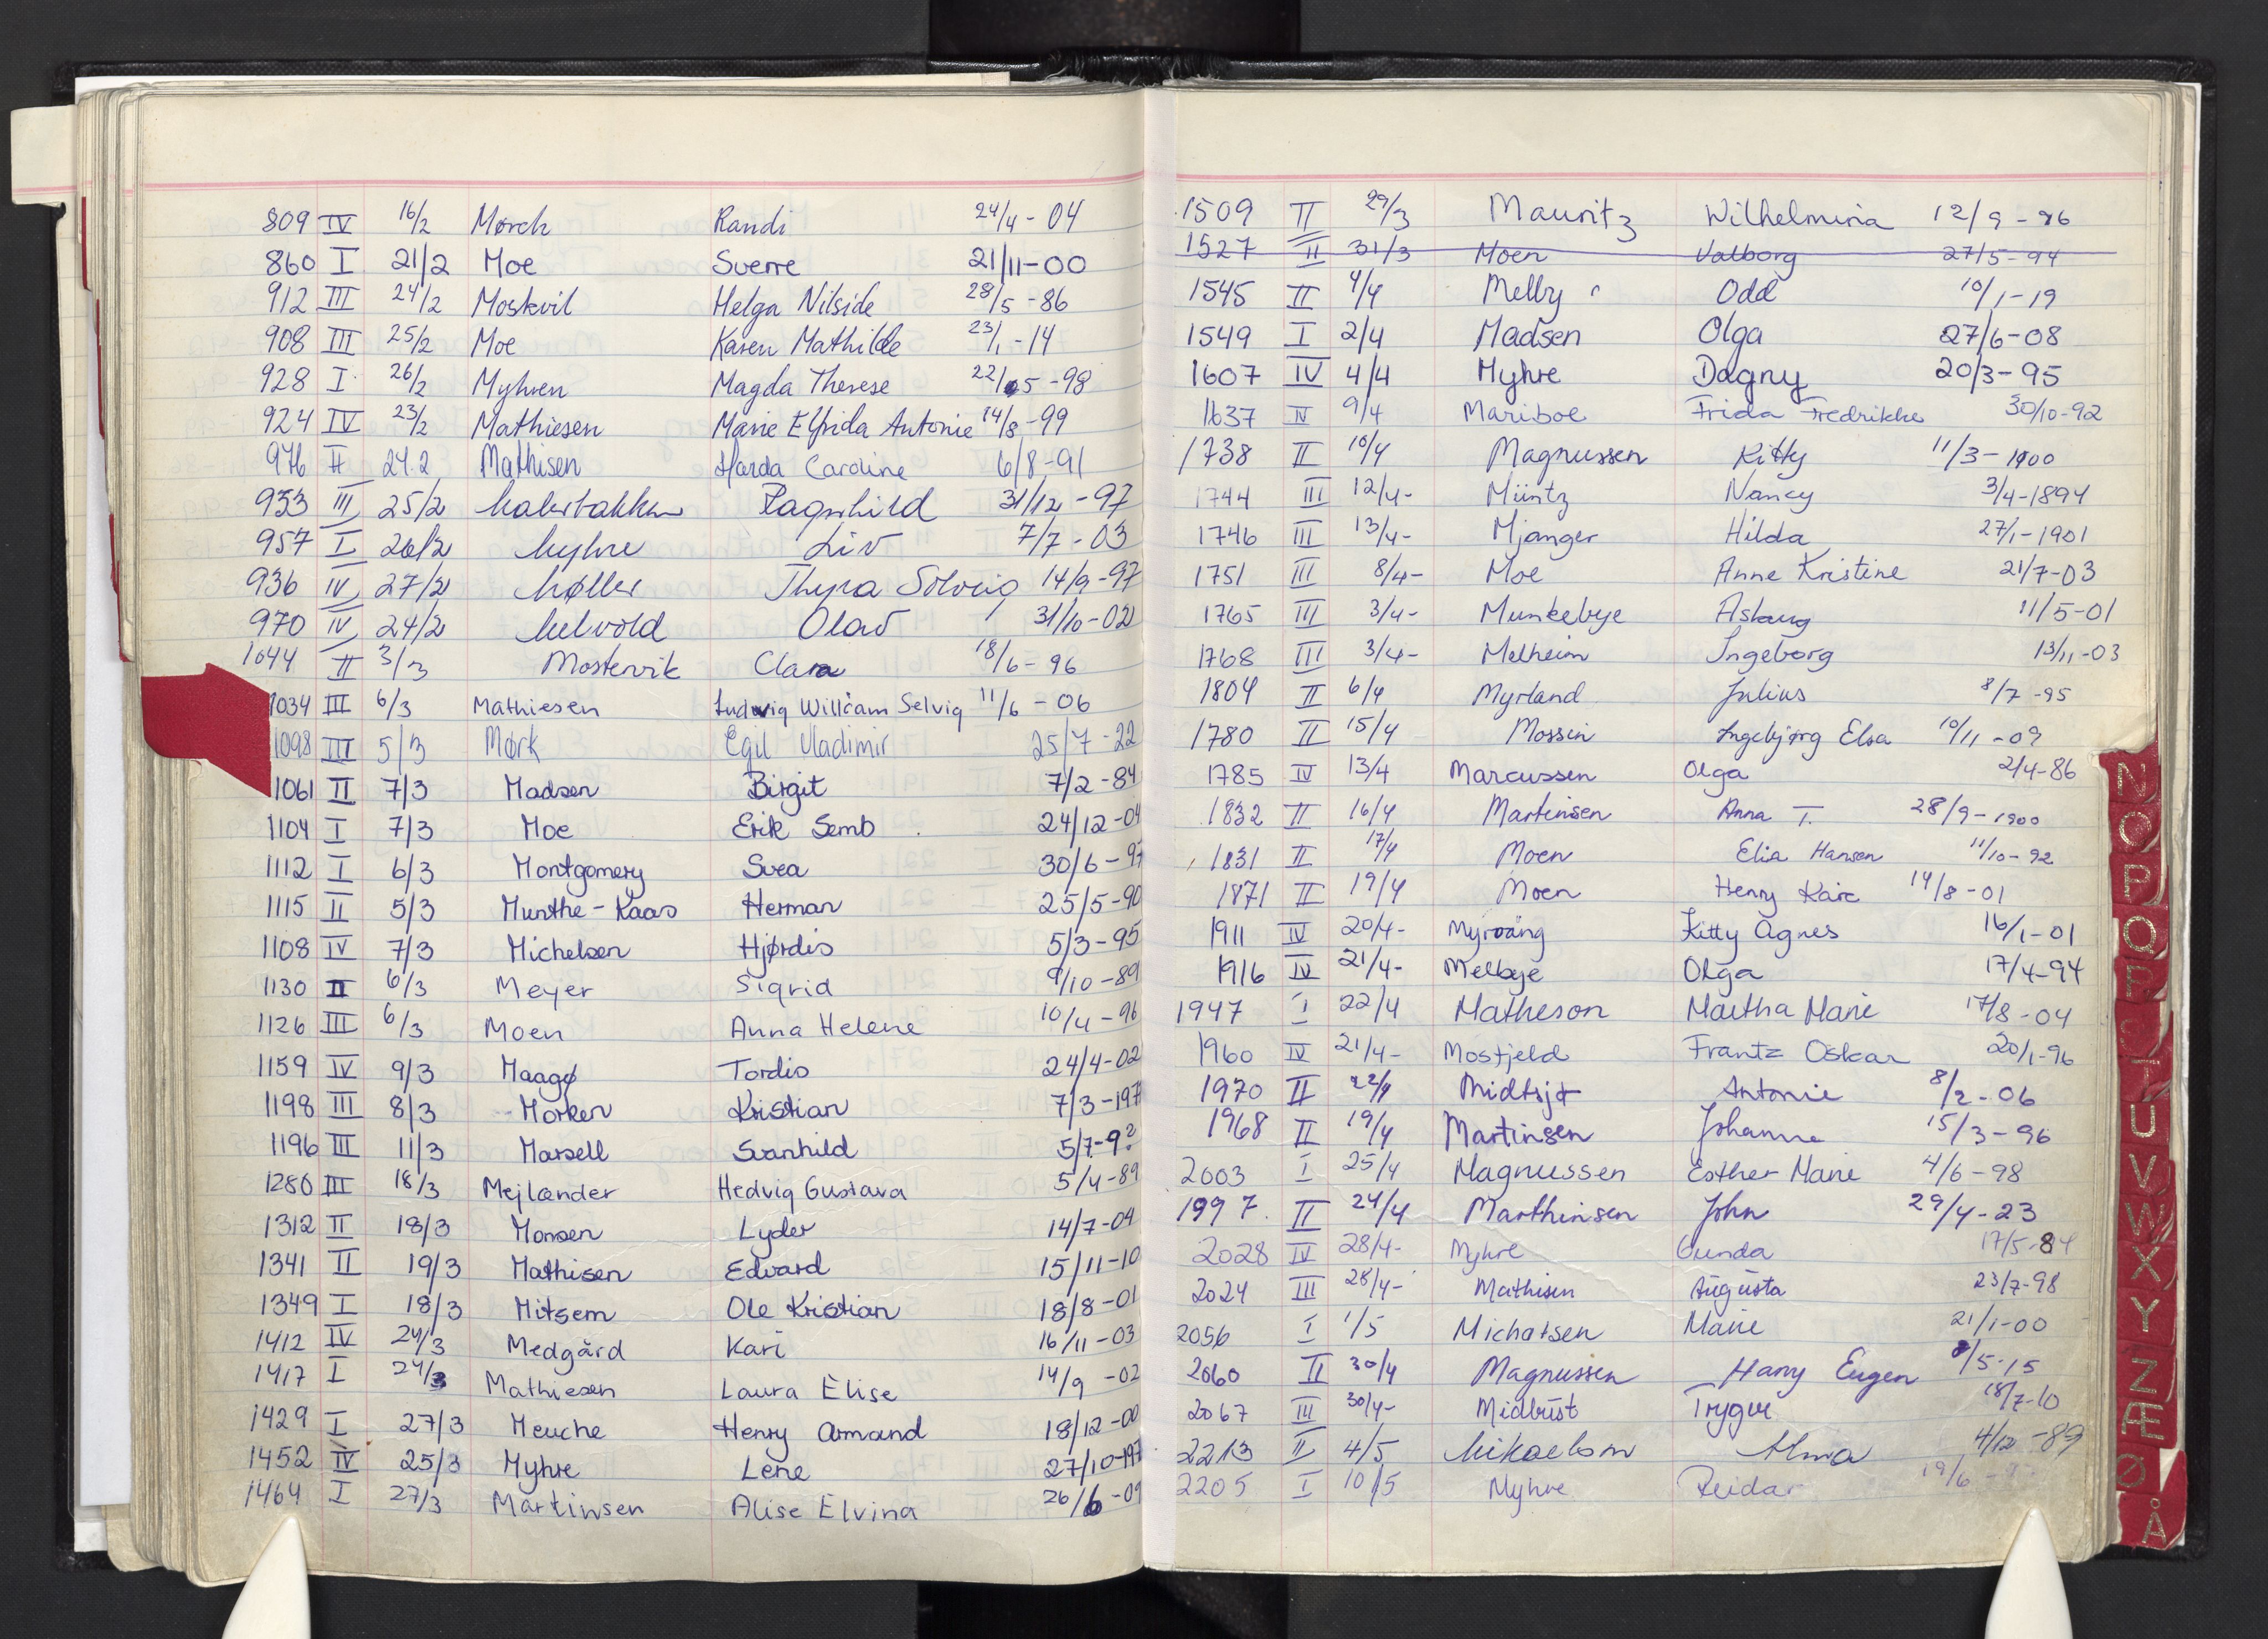 809 IV 16/2 Mørch Randi 24/4 - 04
860 I 21/2 Moe Sverre 21/11-00
912 III 24/2 Moskvil Helga Nilside 28/5 - 86
908 III 25/2 Moe Karen Mathilde 23/1 - 14
928 I 26/2 Myhren Magda Therese 22/5 - 98
924 IV 23/2 Mathiesen Marie Elfrida Antonie 14/8 - 99
976 II 24.2 Mathisen Harda Caroline 6/8-91
933 III 25/2 Malerbakken Ragnhild 31/12 - 97
957 I 26/2 Myhre Liv 7/7 - 03
936 IV 27/2 Møller Thyra Solveig 14/9-97
970 IV 24/2 Melvold Olav 31/10-02
1044 II 3/3 Mostervik Clara 18/6 - 96
1034 III 6/3 Mathiesen Ludwig William Selvig 11/6 - 06
1098 III 5/3 Mørk Egil Vladimir 25/7-22
1061 II 7/3 Madsen Birgit 7/2-84
1104 I 7/3 Moe Erik Semb 24/12-04
1112 I 6/3 Montgomery Svea 30/6-97
1115 II 5/3 Munthe-Kaas Herman 25/5-90
1108 IV 7/3 Michelsen Hjørdis 5/3-95
1130 II 6/3 Meyer Sigrid 9/10-89
1126 III 6/3 Moen Anna Helene 10/4 - 96
1159 IV 9/3 Maagø Tordis 24/4-02
1198 III 8/3 Morken Kristian 7/3-197
1196 III 11/3 Marsell Svanhild 5/7-9?
1280 III 18/3 Mejlænder Hedvig Gustava 5/4-89
1312 II 18/3 Monsen Lyder 14/7-04
1341 II 19/3 Mathisen Edvard 15/11-10
1349 I 18/3 Mitsem Ole Kristian 18/8-01
1412 IV 24/3 Medgård Kari 16/11-03
1417 I 24/3 Mathiesen Laura Elise 14/9 -02
1429 I 27/3 Meuche Henry Armand 18/12-00
1452 IV 25/3 Myhre Lene 27/10-197
1464 I 27/3 Martinsen Alise Elvina 26/6-09
1509 II 29/3 Mauritz Wilhelmina 12/9 - 96
1527 II 31/3 Moen Valborg 27/5-94
1545 II 4/4 Melby Odd 10/1-19
1549 I 2/4 Madsen Olga 27/6-08
1607 IV 4/4 Myhre Dagny 20/3-95
1637 IV 9/4 Mariboe Frida Fredrikke 30/10-92
1738 II 10/4 Magnussen Kitty 11/3-1900
1744 III 12/4- Müntz Nancy 3/4-1894
1746 III 13/4- Mjanger Hilda 27/1-1901
1751 III 8/4- Moe Anne Kristine 21/7-03
1765 III 3/4- Munkebye Aslaug 11/5-01
1768 III 3/4- Melheim Ingeborg 13/11-03
1804 II 6/4 Myrland Julius 8/7-95
1780 II 15/4 Mossin Ingebjørg Elsa 10/11-09
1785 IV 13/4 Marcussen Olga 2/4-86
1832 II 16/4 Martinsen Anna T. 28/9-1900
1831 II 17/4 Moen Elia Hansen 11/10-92
1871 II 19/4 Moen Henry Kåre 14/8-01
1911 IV 20/4- Myrvång Kitty Agnes 16/1-01
1916 IV 21/4- Melbye Olga 17/4-94
1947 I 22/4 Matheson Martha Marie 17/8-04
1960 IV 21/4- Mosfjeld Frantz Oskar 20/1-96
1970 II 22/4 Midtsjø Antonie 8/2-06
1968 II 19/4 Martinsen Johanne 15/3-96
2003 I 25/4 Magnussen Esther Marie 4/6-98
1997. II 24/4 Marthinsen John 29/4-23
2028 IV 28/4- Myhre Gunda 17/5-84
2024 III 28/4- Mathisen Augusta 23/7-98
2056 I 1/5 Michalsen Marie 21/1-00
2060 II 30/4 Magnussen Harry Eugen /5-15
2067 III 30/4- Midbrøst Trygve 18/7-10
2213 II 4/5 Mikaelsen Alma 4/12-89
2205 I 10/5 Myhre Reidar 19/6 -
N
O
P
Q
R
S
T
U
V
W
X
Y
Z
Æ
Ø
Å